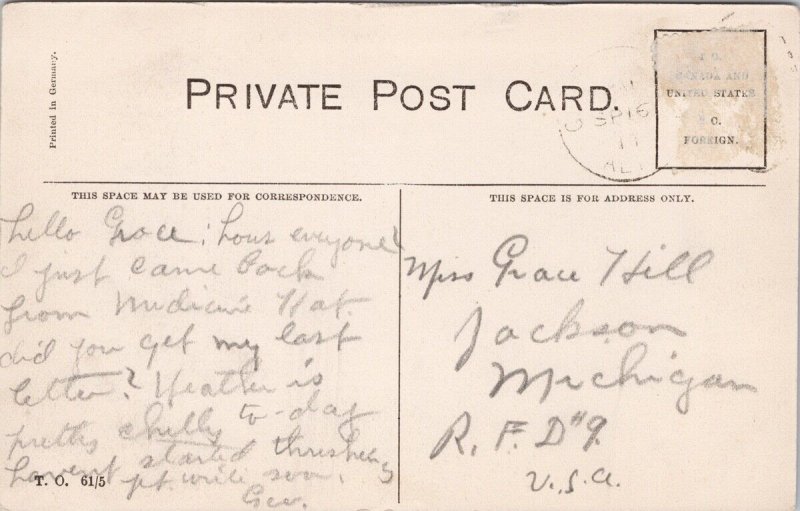 Printed in Germany.
PRIVATE POST CARD.
CANADA AND
UNITED STATES
FOREIGN.
SP 16
THIS SPACE MAY BE USED FOR CORRESPONDENCE.
THIS SPACE IS FOR ADDRESS ONLY.
hello Grace; hows everyone?
I just came back
from Medicine Hat.
did you get my last
letter? Weather is
pretty chilly to-day
havent started threshing
yet. write soon.
Geo.
T. O. 61/5
Miss Grace Hill
Jackson
Michigan
R. F. D #9.
U.S.A.